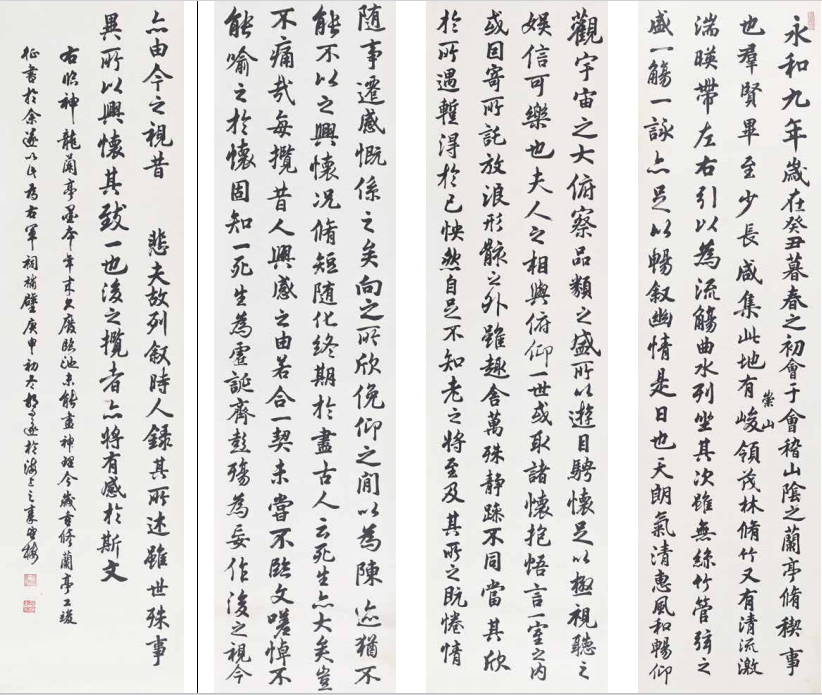 永和九年歲在癸丑暮春之初會于會稽山陰之蘭亭脩稧事
也羣賢畢至少長咸集此地有崇山峻領茂林脩竹又有清流激
湍暎帶左右引以為流觴曲水列坐其次雖無絲竹管弦之
盛一觴一詠亦足以暢叙幽情是日也天朗氣清惠風和暢仰
觀宇宙之大俯察品類之盛所以遊目騁懷足以極視聽之
娛信可樂也夫人之相與俯仰一世或取諸懷抱悟言一室之内
或因寄所託放浪形骸之外雖趣舍萬殊静躁不同當其欣
於所遇蹔得於己怏然自足不知老之將至及其所之既惓情
隨事遷感慨係之矣向之所欣俛仰之閒以為陳迹猶不
能不以之興懷况脩短隨化終期於盡古人云死生亦大矣豈
不痛哉每攬昔人興感之由若合一契未嘗不臨文嗟悼不
能喻之於懷固知一死生為虛誕齊彭殤為妄作後之視今
亦由今之視昔 悲夫故列叙時人錄其所述雖世殊事
異所以興懷其致一也後之攬者亦將有感於斯文
右臨神龍蘭亭墨本年來久廢臨池未能盡神理今歲重修蘭亭工竣
征書於余遂以此為右軍祠補壁庚申初冬胡問遂於海上之